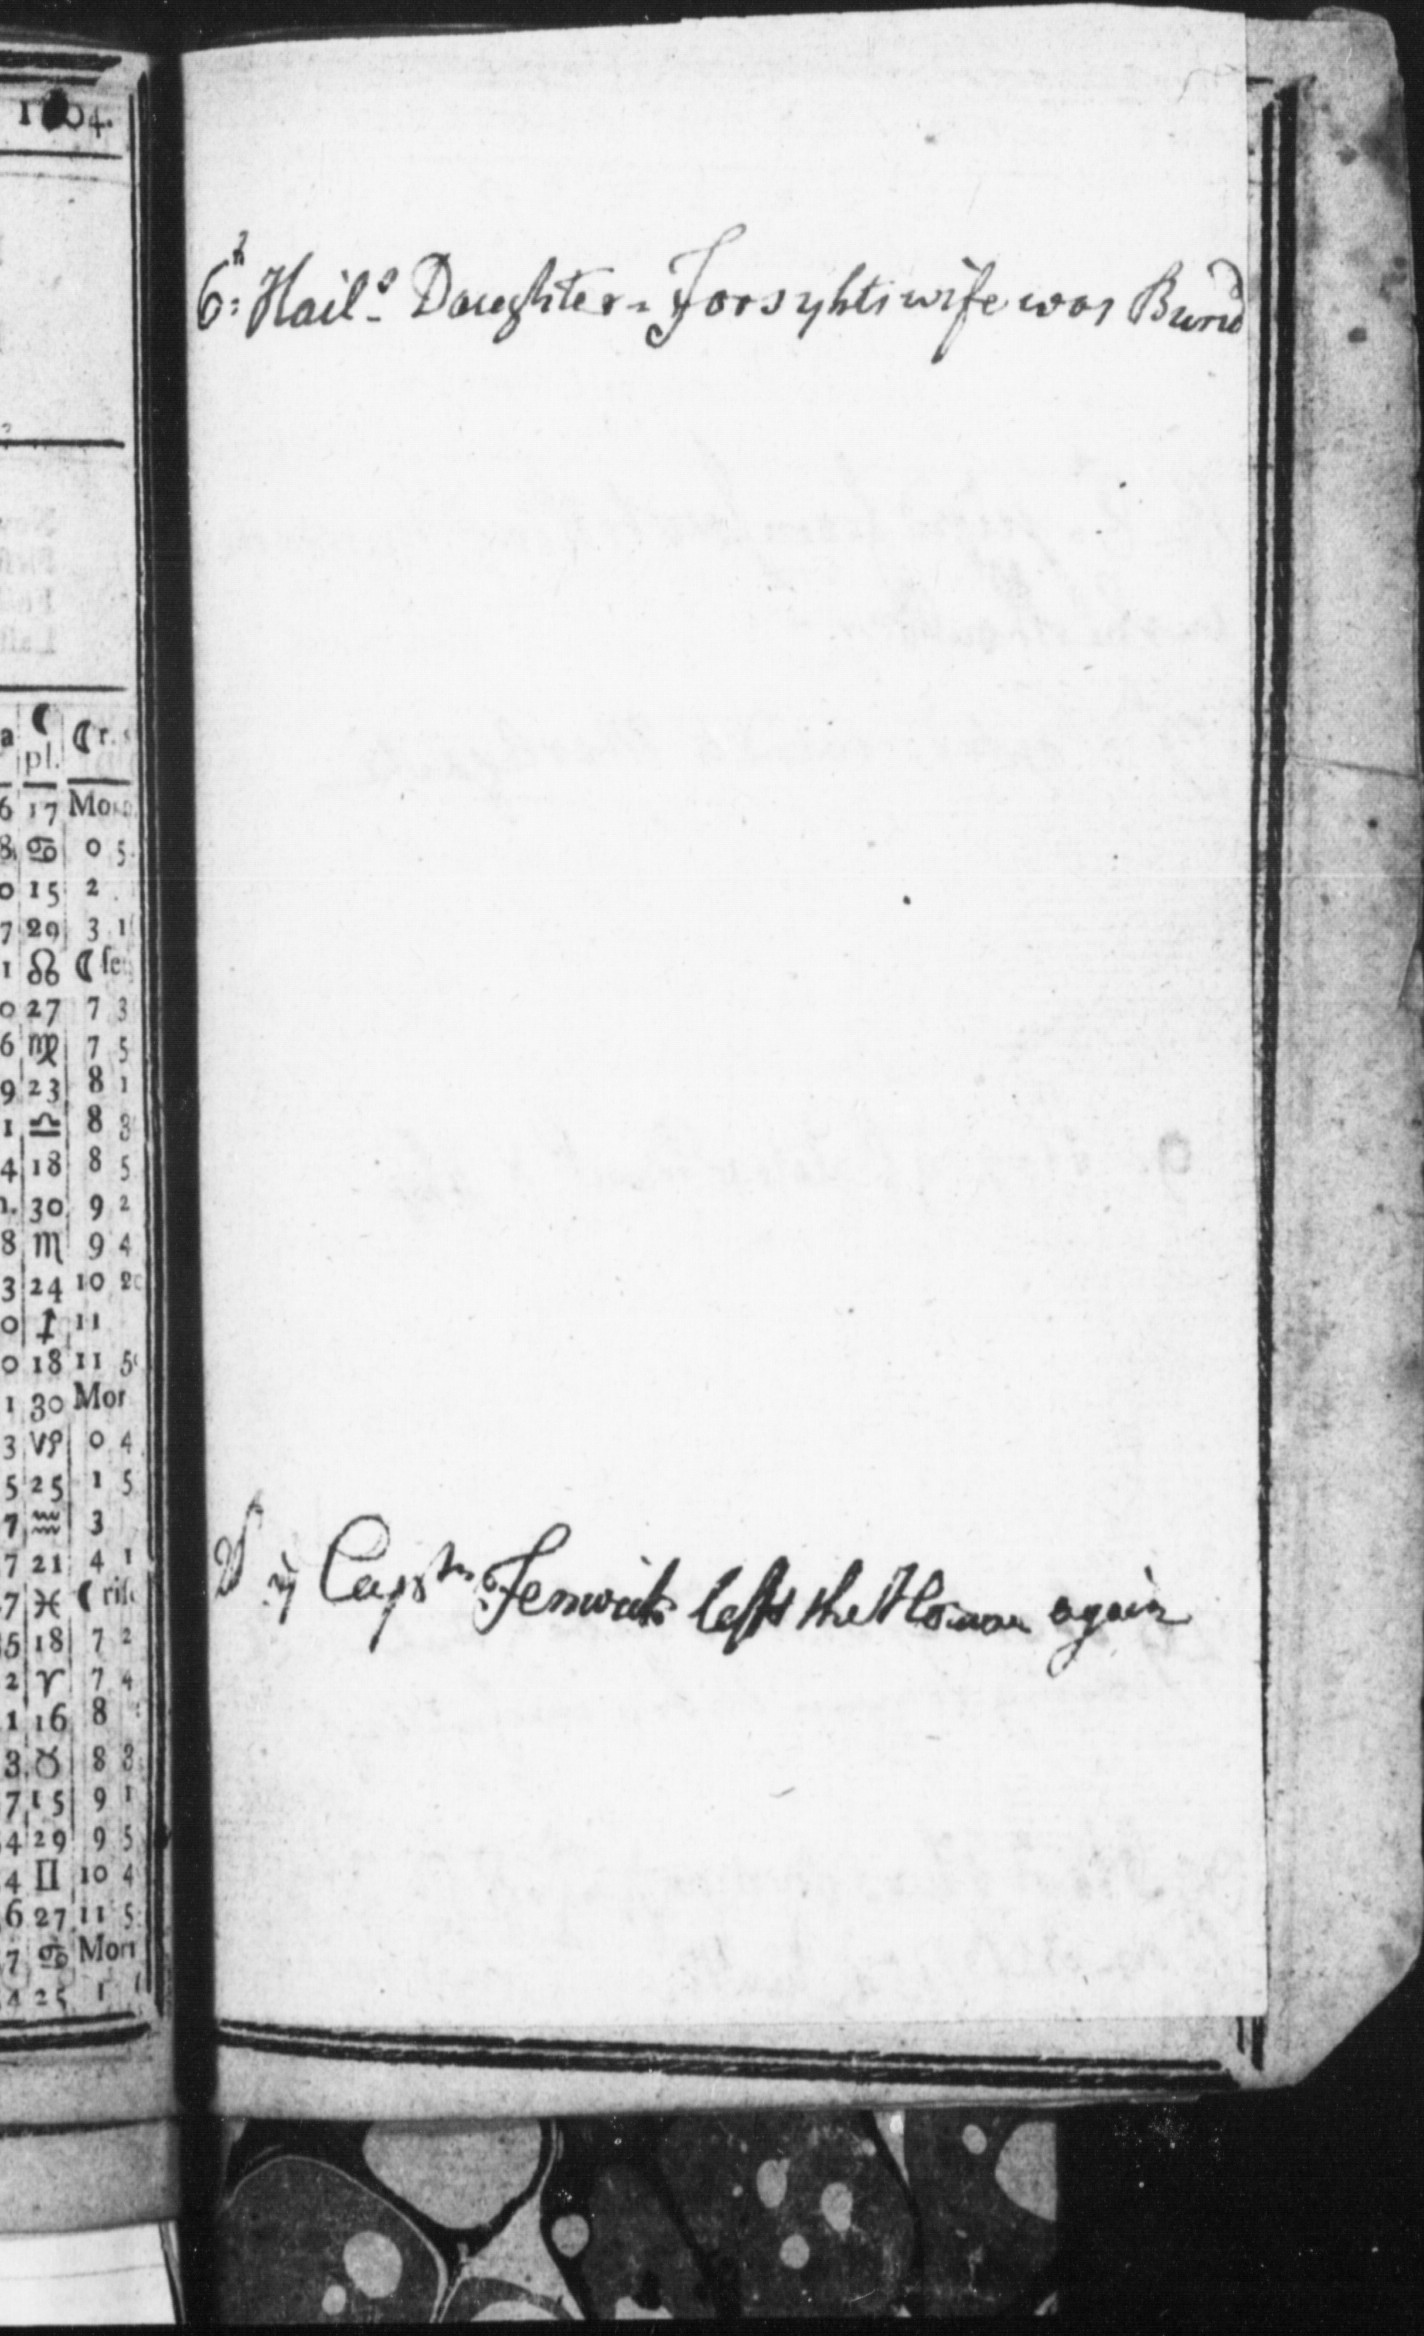 1804.
a ☾ pl. ☾ r. s
6 17 Mor
8 ♋ 0 5
0 15 2
7 29 3 1
1 ♌ ☾ ſe
0 27 7 3
6 ♍ 7 5
9 23 8 1
1 ♎ 8 3
4 18 8 5
30 9 2
8 ♏ 9 4
3 24 10 20
0 ♐ 11
0 18 11 5
1 30 Mor
3 ♑ 0 4
5 25 1 5
7 ♒ 3
7 21 4 1
7 ♓ ☾ riſe
5 18 7 2
2 ♈ 7 4
1 16 8
3 ♉ 8 3
7 15 9 1
4 29 9 5
4 ♊ 10 4
6 27 11 5
7 ♋ Morn
4 25 1
6th Hail's Daughter - Forsyhts wife was Buried
Captn Fenwick left the House again